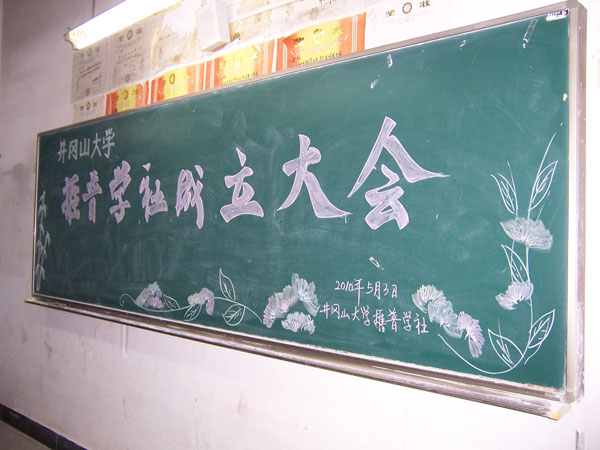 井冈山大学
推普学社成立大会
2010年5月3日
井冈山大学推普学社